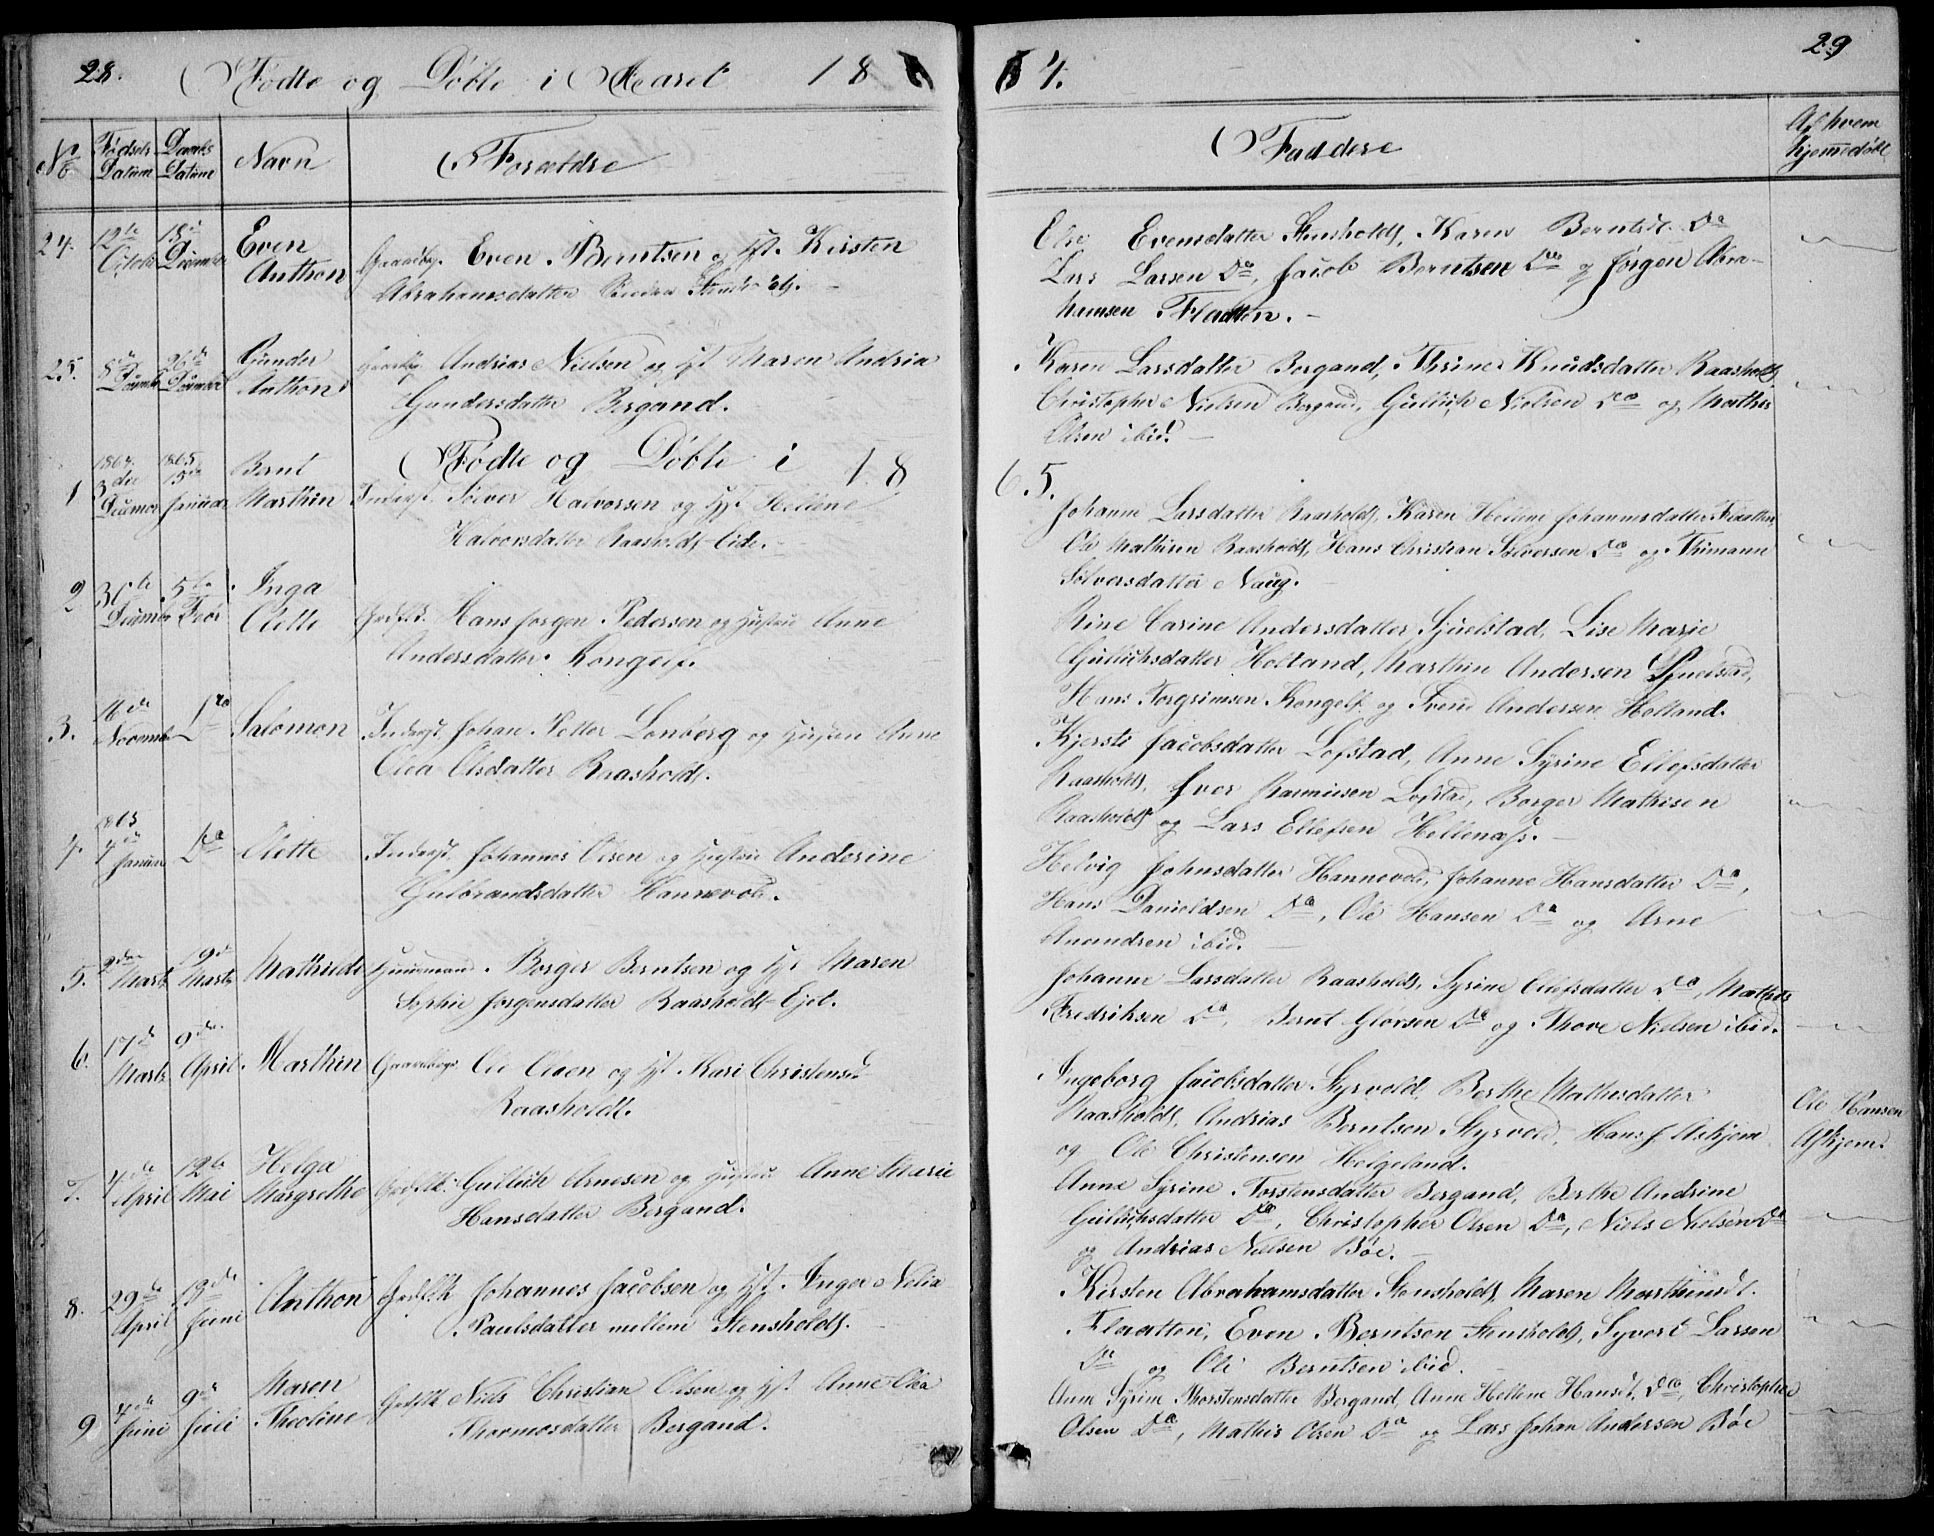 28. Fødte og Døbte i Aaret 18 64. 29
No Fødsels Datum Daabs Datum Navn Forældre Faddere Af hvem hjemmedøbt
24. 12te October 18de December Even Anthon Gaardbr. Even Berntsen og Hst. Kirsten
Abrahamsdatter Stensholdt.
Else Evensdatter Stensholdt, Karen Berntsd. Do
Lars Larsen Do, Jacob Berntsen Do og Jørgen Abra-
hamsen Flaatten.
25. 8de December 26de December Gunder Anthon Gaardbr. Andrias Nielsen og Hst Maren Andria
Gundersdatter Bergand.
Karen Larsdatter Bergand, Thrine Knudsdatter Raasholdt
Christopher Nielsen Bergand, Gulluh Nielsen Do og Mathis
Olsen ibid.
Fødte og Døbte i 18 65.
1 1864 3die December 1865 15de Januar Bernt Marthin Inderst Sølver Halvorsen og Hst Hellene
Halvorsdatter Raasholdt-Eide.
Johanne Larsdatter Raasholdt, Karen Hellene Johannesdatter Flaatten
Ole Mathisen Raasholdt, Hans Christian Sølversen Do og Thimann
Sølversdatter Naug.
2 30te December 5te Febr Inga Olette Grdflk. Hans Jørgen Pedersen og Hustru Anne
Andersdatter Kongelf.
Rine Carine Andersdatter Sjuelstad, Lise Marje
Gulluhsdatter Holtand, Marthin Andersen Sjuelstad,
Hans Torgrimsen Kongelf og Svend Andersen Holtand.
3. 16de November Do Salomon Inderst Johan Petter Lønberg og Hustru Anne
Olea Olsdatter Raasholdt.
Kjersti Jacobsdatter Lofstad, Anne Syrine Ellefsdatter
Raasholdt, Iver Rasmusen Lofstad, Borger Mathisen
Raasholdt og Lars Ellefsen Hellenæss.
4. 1865 4de Januar Do Olette Inderst Johannes Olsen og Hustru Anderine
Gulbrandsdatter Hannevold.
Helvig Johnsdatter Hannevold, Johanne Hansdatter Do,
Hans Danieldsen Do, Ole Hansen Do og Arne
Amundsen ibid.
5. 2den Marts 19de Marts Mathilde Huusmand Borger Berntsen og Hst Maren
Sophie Jørgensdatter Raasholdt-Ejet.
Johanne Larsdatter Raasholdt, Syrine Olefsdatter Do, Mathis
Fredriksen Do, Bernt Giorsen Do og Thove Nielsen ibid.
6. 17de Marts 9de April Marthin Gaardbr. Ole Olsen og Hst Kari Christensd.
Raasholdt.
Ingeborg Jacobsdatter Styrvold, Berthe Mathisdatter
Raasholdt, Andrias Berntsen Styrvold, Hans J Askjem
og Ole Christensen Helgeland.
Ole Hansen
Askjem.
7. 4de April 12te Mai Helga Margrethe Grdflk. Gulluh Arnesen og Hustru Anne Marie
Hansdatter Bergand.
Anne Syrine Torstensdatter Bergand, Berthe Andrine
Gulluhsdatter Do, Christopher Olsen Do, Niels Nielsen Do
og Andrias Nielsen Bøe.
8. 29de April 18de Juni Anthon Grdflk Johannes Jacobsen og Hst. Inger Nelia
Paulsdatter mellem Stensholdt.
Kirsten Abrahamsdatter Stensholdt, Maren Marthinsdt.
Flaatten, Even Berntsen Stensholdt, Syvert Larsen
Do og Ole Berntsen ibid.
9 4de Juni 9de Juli Maren Theoline Grdflk Niels Christian Olsen og Hst Anne Olea
Thormosdatter Bergand.
Anne Syrine Thorstensdatter Bergand, Anne Hellene Hansd. Do, Christopher
Olsen Do, Mathis Olsen Do og Lars Johan Andersen Bøe